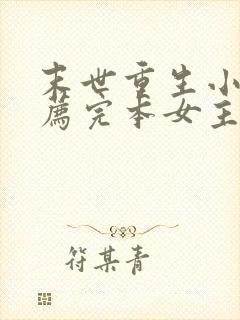 末世重生小
薦完本女主
符某青